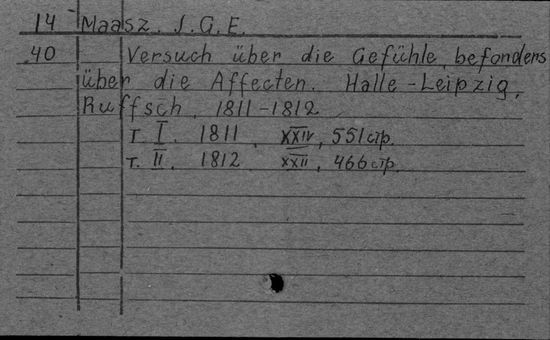 14 Maasz. J.G.E.
40 Versuch über die Gefühle, befonders
über die Affecten. Halle-Leipzig,
Ruffsch, 1811-1812.
т. I. 1811. XXIV, 551 стр.
т. II. 1812 XXII, 466 стр.